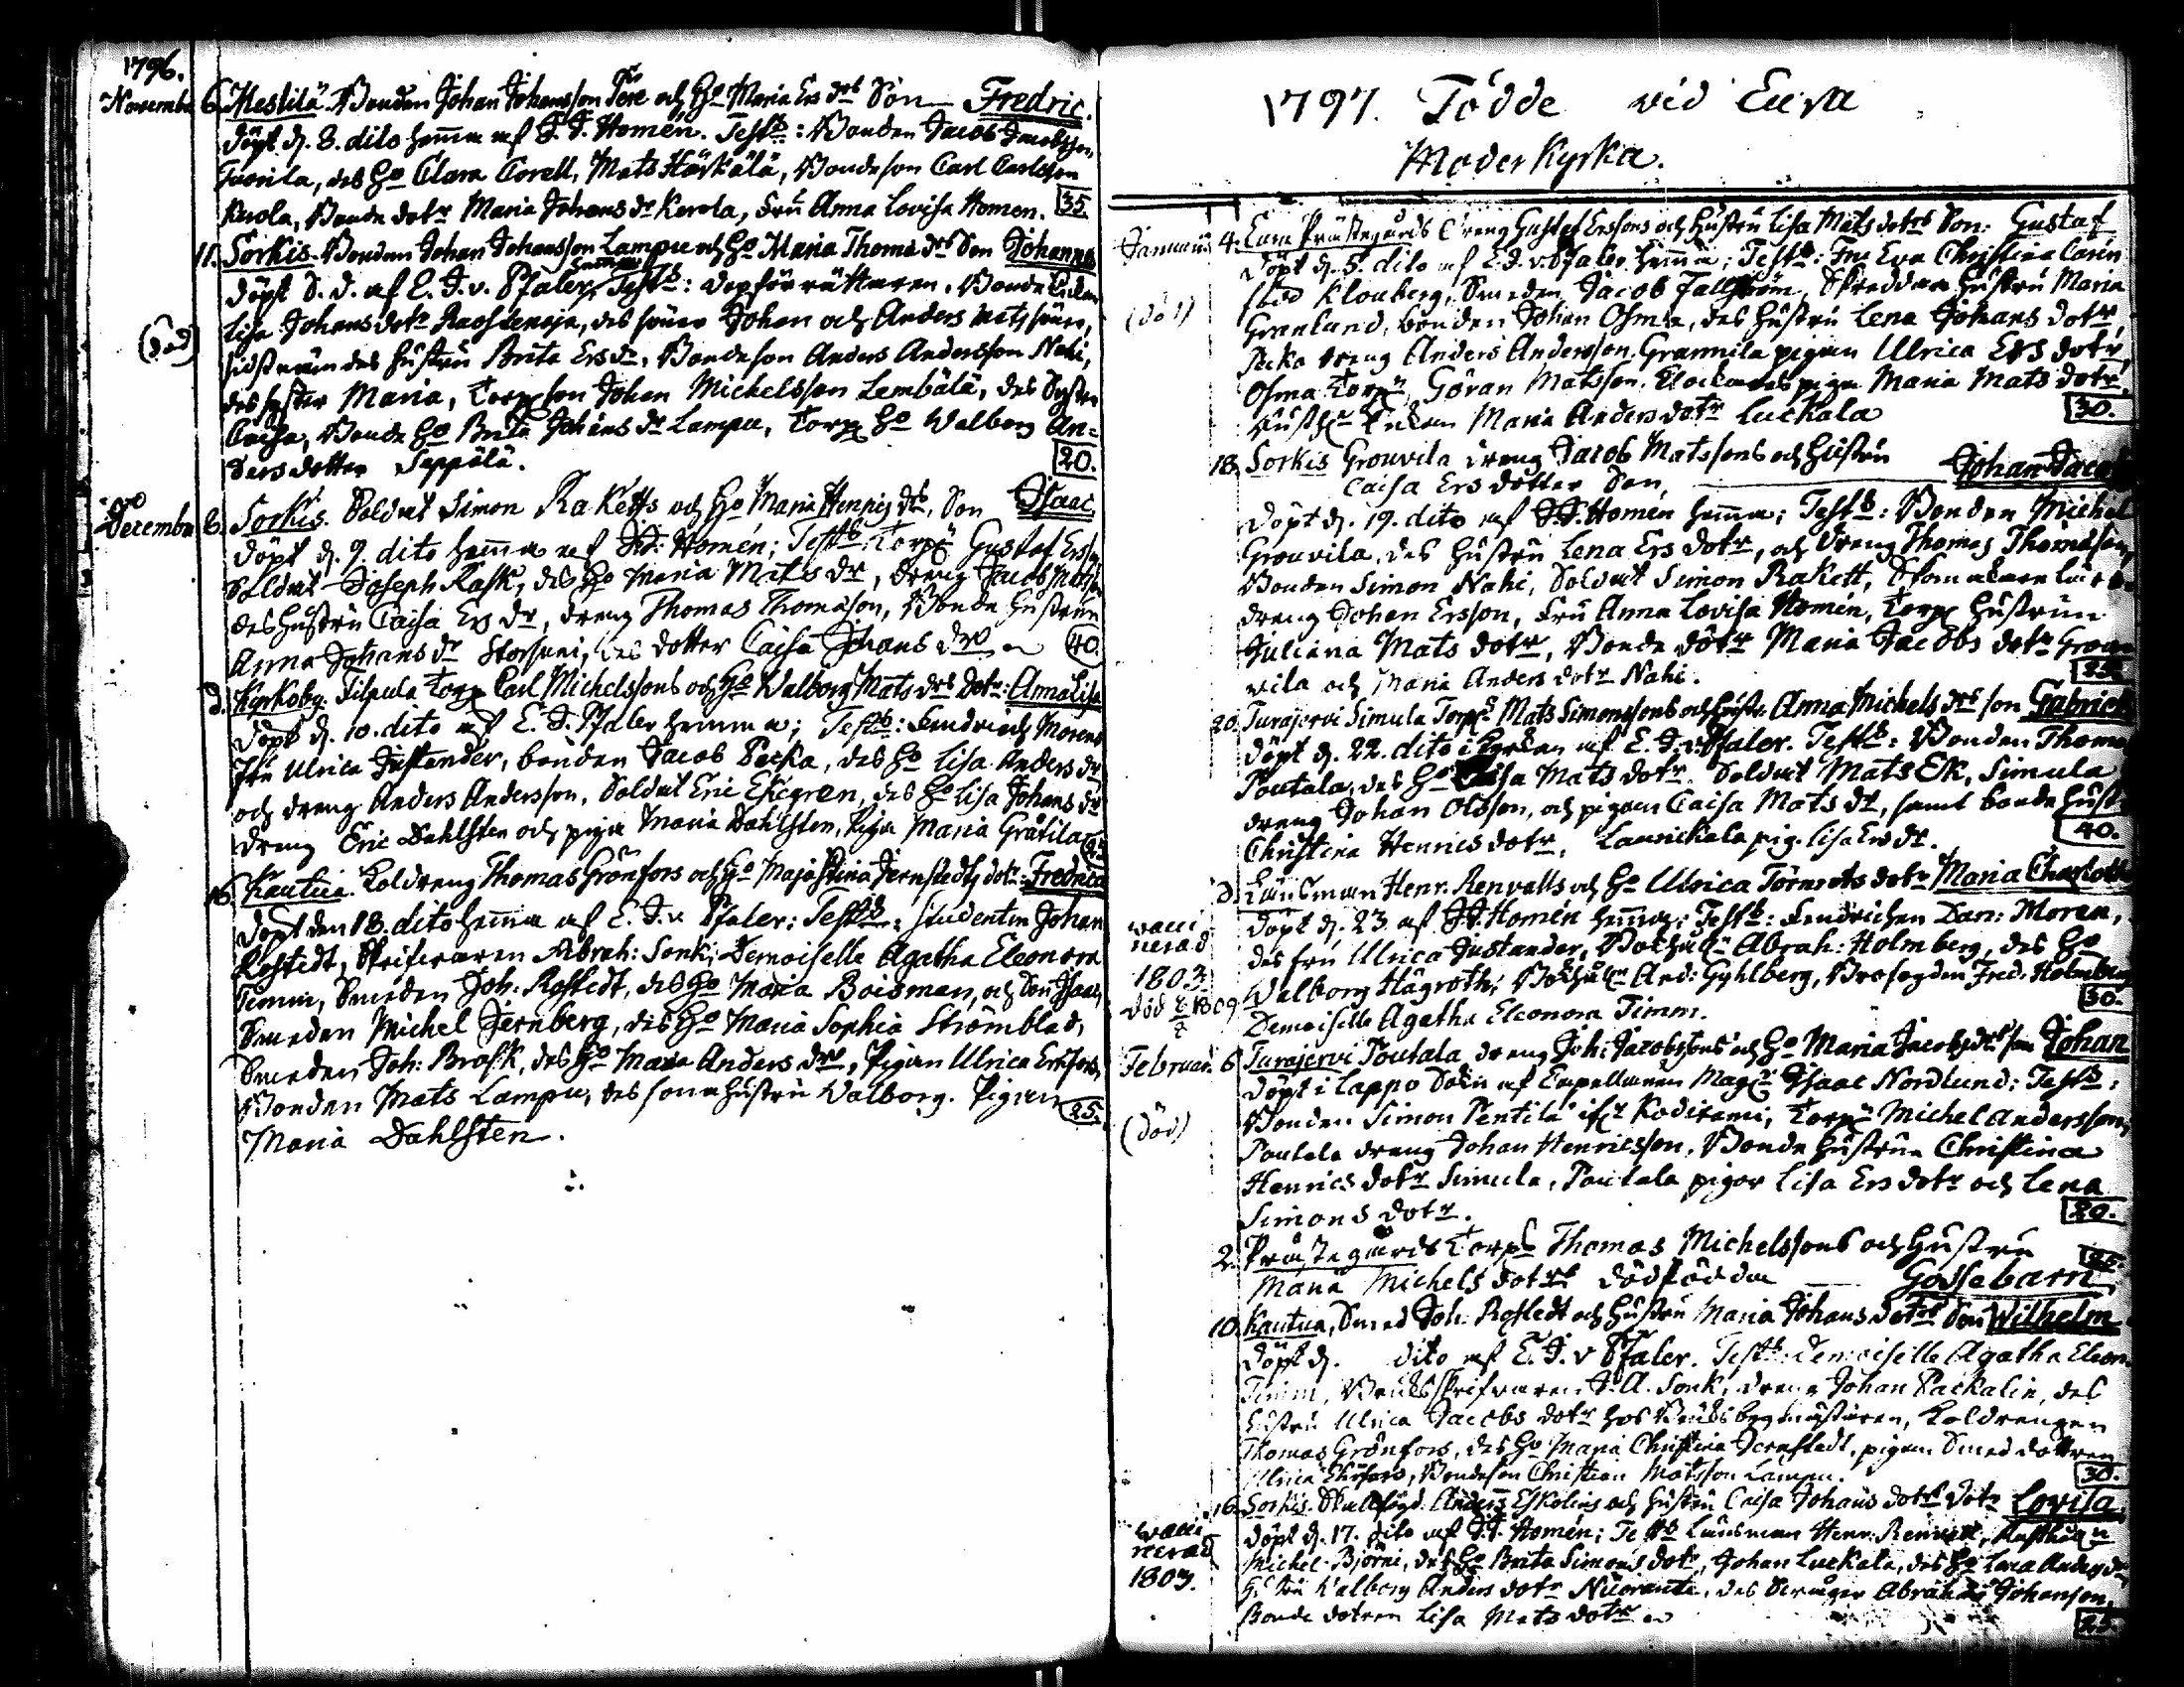 1796.
Novembr 6. Mestilä Bonden Johan Johansson Pere och Ho Maria Ers drs Son Fredric.
döpt d. 8. dito hemma af J. J. Homén. Testb: Bonden Jacob Jacobsson
des Ho Clara Corell, Mats Härkälä, Bondeson Carl Carlsson
Bonde dotr Maria Johans dr Kerola, fru Anna Lovisa Homen. 35.
11. Sorkis. Bonden Johan Johansson Lampu och Ho Maria Thoms drs Son Johannes
döpt S. D. af E. J. v. Pfaler hemma Testb: dopförrättaren, Bonde Enkan
Lisa Johans dotr Raostenoja, des söner Johan och Anders Mats söner,
(död)
des hustru Brita Ers dr, Bondeson Anders Andersson Nahi,
des syster Maria, Torpson Johan Michelsson Lembälä, des Syster
Caisa, Bonde Ho Brita Johans dr Lampu, Torp Ho Walborg An=
ders dotter Seppälä. 20.
December 8. Sorkis. Soldat Simon Raketts och Ho Maria Henrics drs, Son Isaac.
döpt d. 9. dito hemma af J. J. Homén; Testb: Torp Gustaf Ersson
Soldat Joseph Rask, des Ho Maria Mats dr, dreng Jacob Matsson
des hustru Caisa Ers dr, dreng Thomas Thomasson, Bonde hustrun
Anna Johans dr Storsuni, des dotter Caisa Johans dr 40.
d. Kyrkoby. Filpula Torp Carl Michelssons och Ho Walborg Mats drs dotr: Anna Lisa
döpt d. 10. dito af E. J. Pfaler hemma; Testb: Fendrich Moren
Fru Ulrica Justander, bonden Jacob Pecka, des Ho Lisa Anders dr
och dreng Anders Andersson, Soldat Eric Ekegren, des Ho Lisa Johans dr
dreng Eric Dahlsten och piga Maria Dahlsten, Piga Maria Gråtila
16. Kautua. Koldreng Thomas Grönfors och Ho Maja Stina Jernstedts dotr: Fredrica
döpt den 18. dito hemma af E. J. v. Pfaler; Testb: Studenten Johan
Rostedt, Skrifvaren Abrah: Sonk; Demoiselle Agatha Eleonora
Timm, Smeden Joh. Rostedt, des Ho Maria Boisman, och Son Isaac,
Smeden Michel Jernberg, des Ho Maria Sophia Strömblad,
Smeden Joh: Brask, des Ho Maria Anders dr, Pigan Ulrica
Bonden Mats Lampu, des sona hustru Walborg. Pigan 25.
Maria Dahlsten.
1797. Födde vid Eura
Moder Kyrka.
Januarii 4. Eura Prästegårds Dreng Gustaf Erssons och Hustru Lisa Mats dotrs Son: Gustaf
döpt d. 5. dito af E. J. v. Pfaler hemma; Testb: Fru Eva Christina
(död) Klouberg, Smeden Jacob Fallström, Skreddare hustru Maria
Granlund, bonden Johan Osma, des hustru Lena Johans dotr,
Pecka dreng Anders Andersson, Grannila pigan Ulrica Ers dotr,
Osma Torpr Göran Matsson, Klockareds piga Maria Mats dotr,
Enkan Maria Anders dotr Luckala 30.
18. Sorkis Grouvila dreng Jacob Matssons och hustru
Caisa Ers dotter Son, Johan Jacob
döpt d. 19. dito af J. J. Homén hemma; Testb: Bonden Michel
Grouvila, des hustru Lena Ers dotr, och dreng Thomas Thomasson,
Bonden Simon Nahi, Soldat Simon Rakett,
dreng Johan Ersson, fru Anna Lovisa Homén, Torp hustrun
Juliana Mats dotr, Bonde dotr Maria Jacobs dotr Grou
vila och Maria Anders dotr Nahi. 25.
20. Turajervi Simula Torp Mats Simonssons och hustr. Anna Michels drs son Gabriel
döpt d. 22. dito i kyrkan af E. J. v. Pfaler. Testb: Bonden Thomas
Poutala, des Ho Caisa Mats dotr. Soldat Mats Ek, Simula
dreng Johan Olsson, och pigan Caisa Mats dr, samt bonde hust
Christina Henrics dotr. Launickala pig. Lisa Ers dr. 40.
d. Länsman Henr. Renvalls och Ho Ulrica Törnrots dotr Maria Charlotta
wacci nerad 1803. död 1809
döpt d. 23. af J. J. Homén hemma; Testb: Fendrichen Dan: Moren,
des fru Ulrica Justander, Bokhåll. Abrah: Holmberg, des Ho
Walborg Hägroth; Bokhålln And: Gyhlberg, Brofogden Fred. Holmberg
Demoiselle Agatha Eleonora Timm. 30.
Februari 6. Turajervi Poutala dreng Joh: Jacobssons och Ho Maria Jacobs drs son Johan
döpt i Lappo Sokn af Capellanen Mag. Isaac Nordlund; Testb:
(död) Bonden Simon Pentilä Kodisami, Torpr Michel Andersson,
Poutala dreng Johan Henricsson, Bonde hustrun Christina
Henrics dotr Simula, Poutala pigor Lisa Ers dotr och Lena
Simons dotr. 20.
2. Prästegårds Torp Thomas Michelssons och hustru 25.
Maria Michels dotrs dödfödda Gossebarn
10. Kautua, Smed Joh: Rostedt och hustru Maria Johans dotrs Son Wilhelm
döpt d. dito af E. J. v Pfaler. Testb: Demoiselle Agatha Eleon.
Timm, Bruksskrifvaren J. A. Sonk, dreng Johan Packalin, des
hustru Ulrica Jacobs dotr hos Bruks bygmästaren, Koldrengen
Thomas Grönfors, des Ho Maria Christina Jernstedt, pigan Smed dottren
Ulrica Ekefors, Bondeson Christian Matsson Lampu. 30.
16. Sorkis. Skallfogd. Anders Eskolins och hustru Caisa Johans dotrs dotr Lovisa
wacci nerad 1803.
döpt d. 17. dito af J. J. Homén; Testb Länsman Henr: Renvall,
Michel Björni, des Ho Brita Simons dotr, Johan Luckala, des Ho Lena Anders dr
Walborg Anders dotr Nuoranta, des Svåger Abraham Johansson,
Bonde dotren Lisa Mats dotr 25.